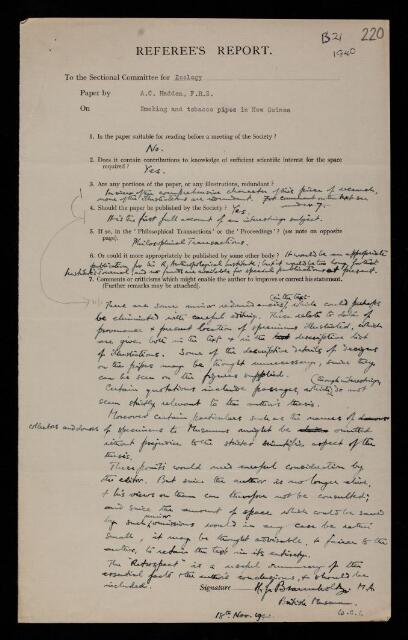 B21 220
1940
REFEREE'S REPORT.
To the Sectional Committee for Zoology
Paper by A.C. Haddon, F.R.S.
On Smoking and tobacco pipes in New Guinea
1. Is the paper suitable for reading before a meeting of the Society ?
No.
2. Does it contain contributions to knowledge of sufficient scientific interest for the space
required ? Yes.
3. Are any portions of the paper, or any illustrations, redundant ?
In view of the comprehensive character of this piece of research,
none of the illustrations are redundant. For comment on the text see
under 7.
4. Should the paper be published by the Society ? Yes.
It is the first full account of an interesting subject.
5. If so, in the 'Philosophical Transactions' or the 'Proceedings' ? (see note on opposite
page). Philosophical Transactions.
6. Or could it more appropriately be published by some other body ? It would be an appropriate
publication for the R. Anthropological Institute; but it would be too long for that
Institute's Journal, and no funds are available for special publications at present.
7. Comments or criticisms which might enable the author to improve or correct his statement.
(Further remarks may be attached).
(in the text)
There are some minor redundancies, which could perhaps
be eliminated with careful editing. These relate to details of
provenance & present location of specimens illustrated, which
are given both in the text & in the descriptive list
of illustrations. Some of the descriptive details of designs
on the pipes may be thought unnecessary, since they
can be seen in the figures supplied.
Certain quotations include passages, which (though interesting) do not
seem strictly relevant to the author's thesis.
Moreover certain particulars such as the names of
collectors and donors of specimens to Museums might be omitted
without prejudice to the stricter scientific aspect of the
thesis.
These points would need careful consideration by
the editor. But since the author is no longer alive,
& his views on them can therefore not be consulted;
and since the amount of space which could be saved
by such minor omissions would in any case be rather
small, it may be thought advisable, & fairer to the
author, to retain the text in its entirety.
The 'Retrospect' is a useful summary of the
essential facts & the author's conclusions, & should be
included.
Signature H. J. Braunholtz M.A.
British Museum
W.C.1
18th Nov. 1940